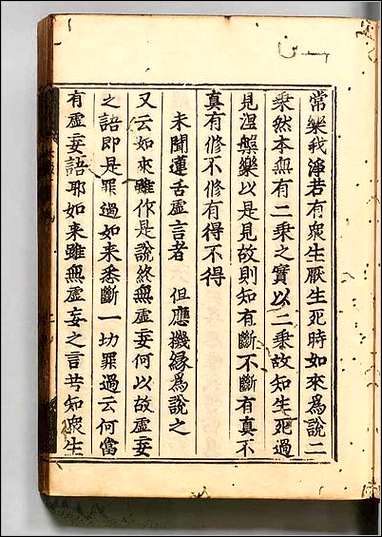 常樂我淨若有衆生厭生死時如來爲說二
乘然本無有二乘之實以二乘故知生死過
見涅槃樂以是見故則知有斷不斷有真不
真有修不修有得不得
未聞蓮舌虛言者 但應機緣爲說之
又云如來雖作是說終無虛妄何以故虛妄
之語即是罪過如來悉斷一切罪過云何當
有虛妄語耶如來雖無虛妄之言若知衆生